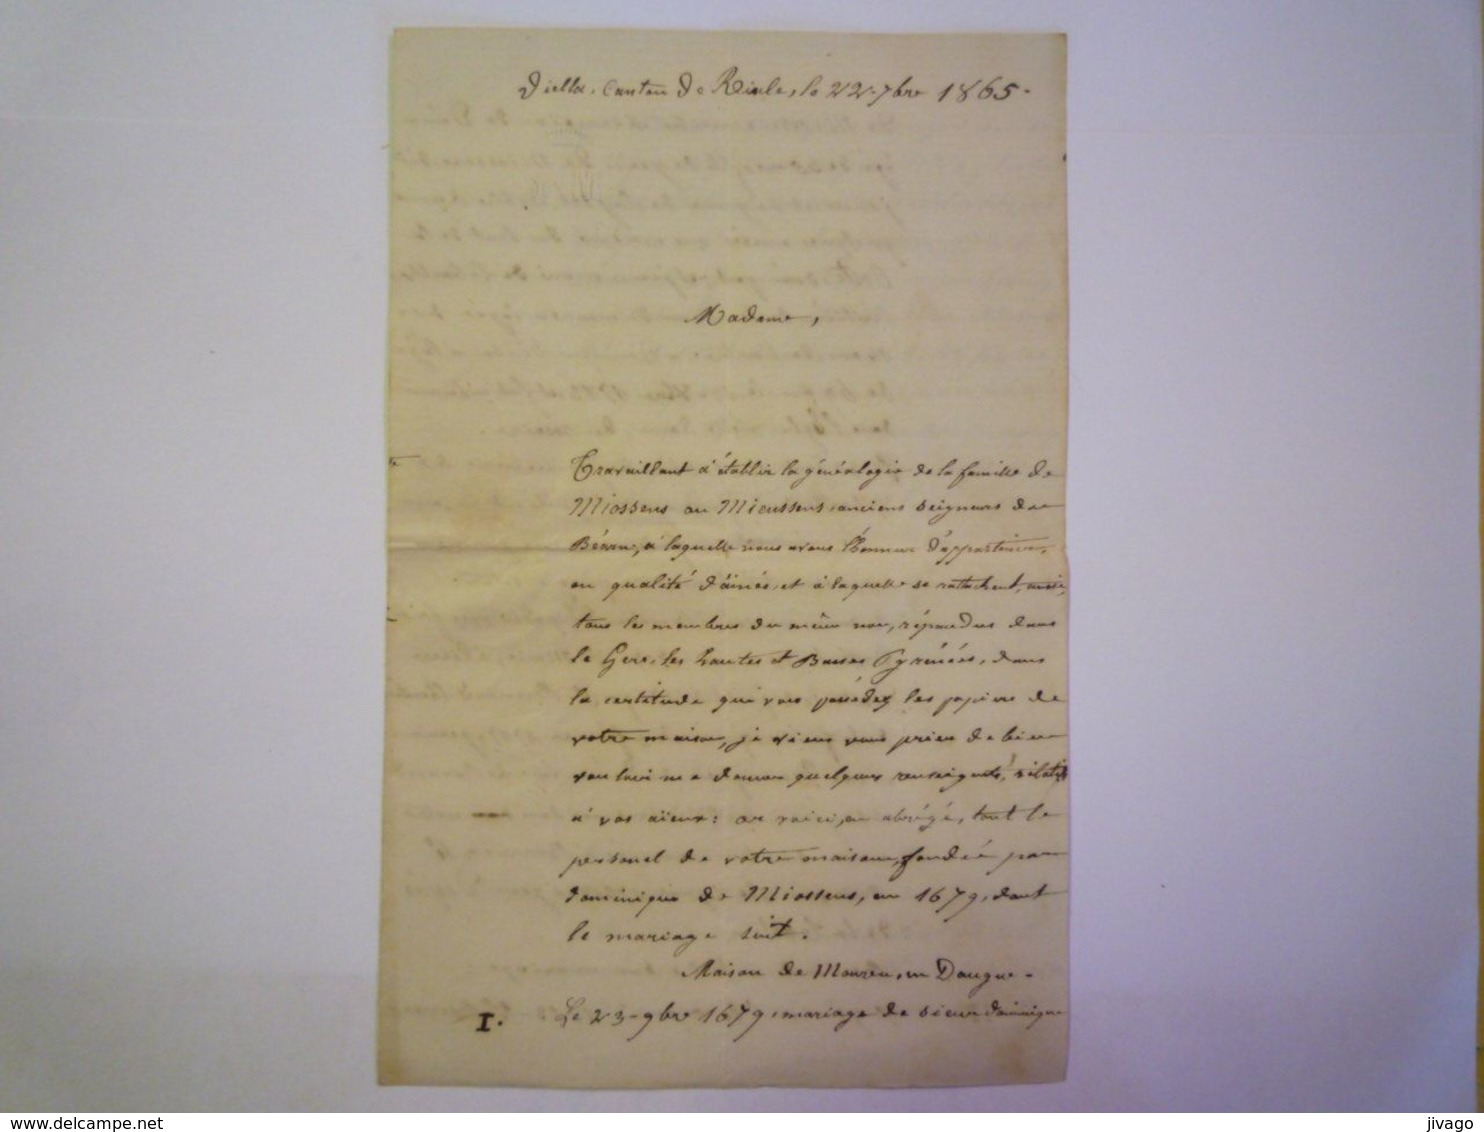 Viella, Canton de Riscle, le 22 7bre 1865.
Madame,
Travaillant à établir la généalogie de la famille de
Miossens ou Mioussens, anciens seigneurs de
Béarn, à laquelle nous avons l'honneur d'appartenir,
en qualité d'ainés, et à laquelle se rattachent, aussi,
tous les membres du même nom, répandus dans
le Gers, les hautes et Basses Pyrénées, dans
la certitude que vous possédez les papiers de
votre maison, je viens vous prier de bien
vouloir me donner quelques renseignts, relatifs
à vos aïeux: or voici, en abrégé, tout le
personel de votre maison, fondée par
dominique de Miossens, en 1679, dont
le mariage suit.
Maison de Mouren, en Daugue.
I. Le 23 9bre 1679, mariage de sieur dominique
delcampe.net
jivago